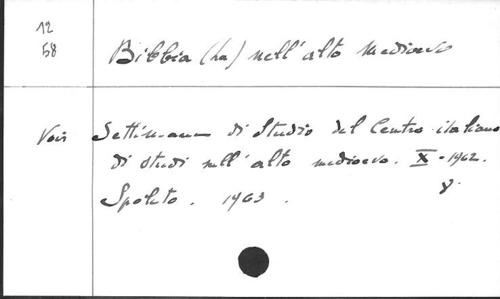 12
58
Bibbia (La) nell'alto Medioevo
Voir Settimana di Studio del Centro italiano
di studi sull'alto medioevo. X - 1962.
Spoleto. 1963. 8.